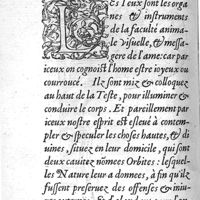 Es Yeux sont les orga
nes & instruments
de la faculté anima-
le visuelle, & messa-
gere de l'ame: car par
iceux on cognoist l'home estre ioyeux ou
courroucé. Ilz sont miz & colloquez
au haut de la Teste, pour illuminer &
conduire le corps. Et pareillement par
iceux nostre esprit est esleué à contem-
pler & speculer les choses hautes, & di
uines, situez en leur domicile, qui sont
deux cauitez nómees Orbites: lesquel-
les Nature leur a donnees, à fin qu'ilz
fussent preseruez des offenses & iniu-